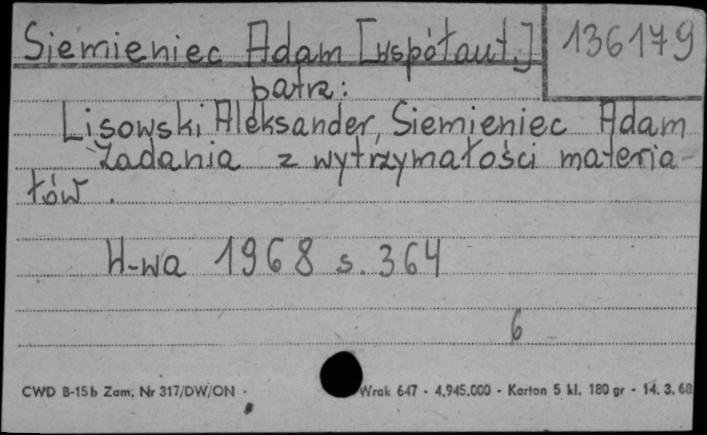 Siemieniec Adam [współaut.] 136179
patrz:
Lisowski Aleksander, Siemieniec Adam
Zadania z wytrzymałości materia-
łów.
W-wa 1968 s. 364
6
CWD B-15b Zam. Nr 317/DW/ON Wrak 647 - 4.945.000 - Karton 5 kl. 180 gr - 14. 3. 68